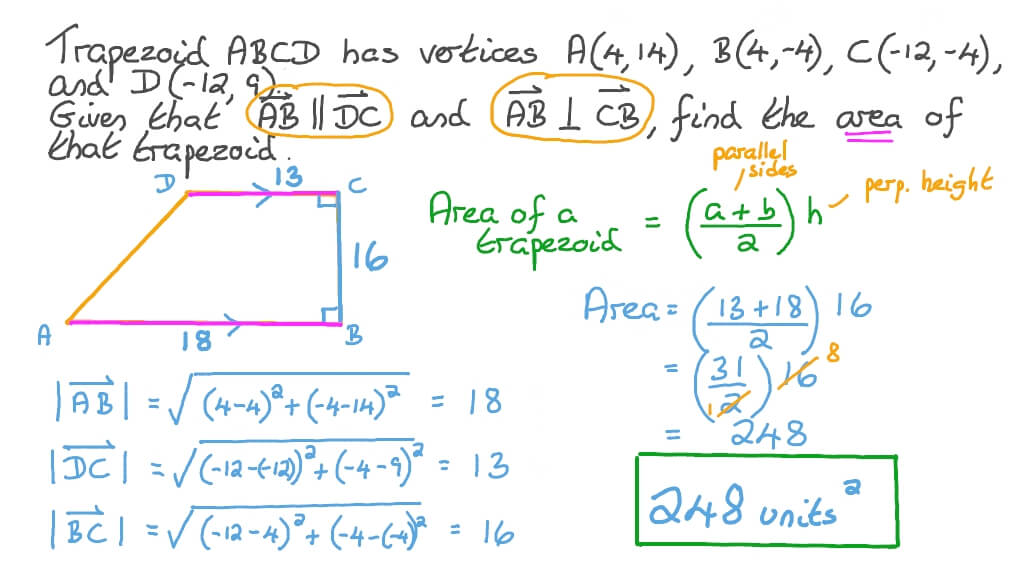 Trapezoid ABCD has vertices A(4,14), B(4,-4), C(-12,-4),
and D(-12,9).
Given that AB || DC and AB ⊥ CB, find the area of
that trapezoid.
D 13 C
16
A 18 B
parallel
sides
perp. height
Area of a
trapezoid = ((a+b)/2) h
Area = ((13+18)/2) 16
= (31/2) 16 1 8
= 248
248 units²
|AB| = √((4-4)²+(-4-14)²) = 18
|DC| = √((-12-(-12))²+(-4-9)²) = 13
|BC| = √((-12-4)²+(-4-(-4))²) = 16